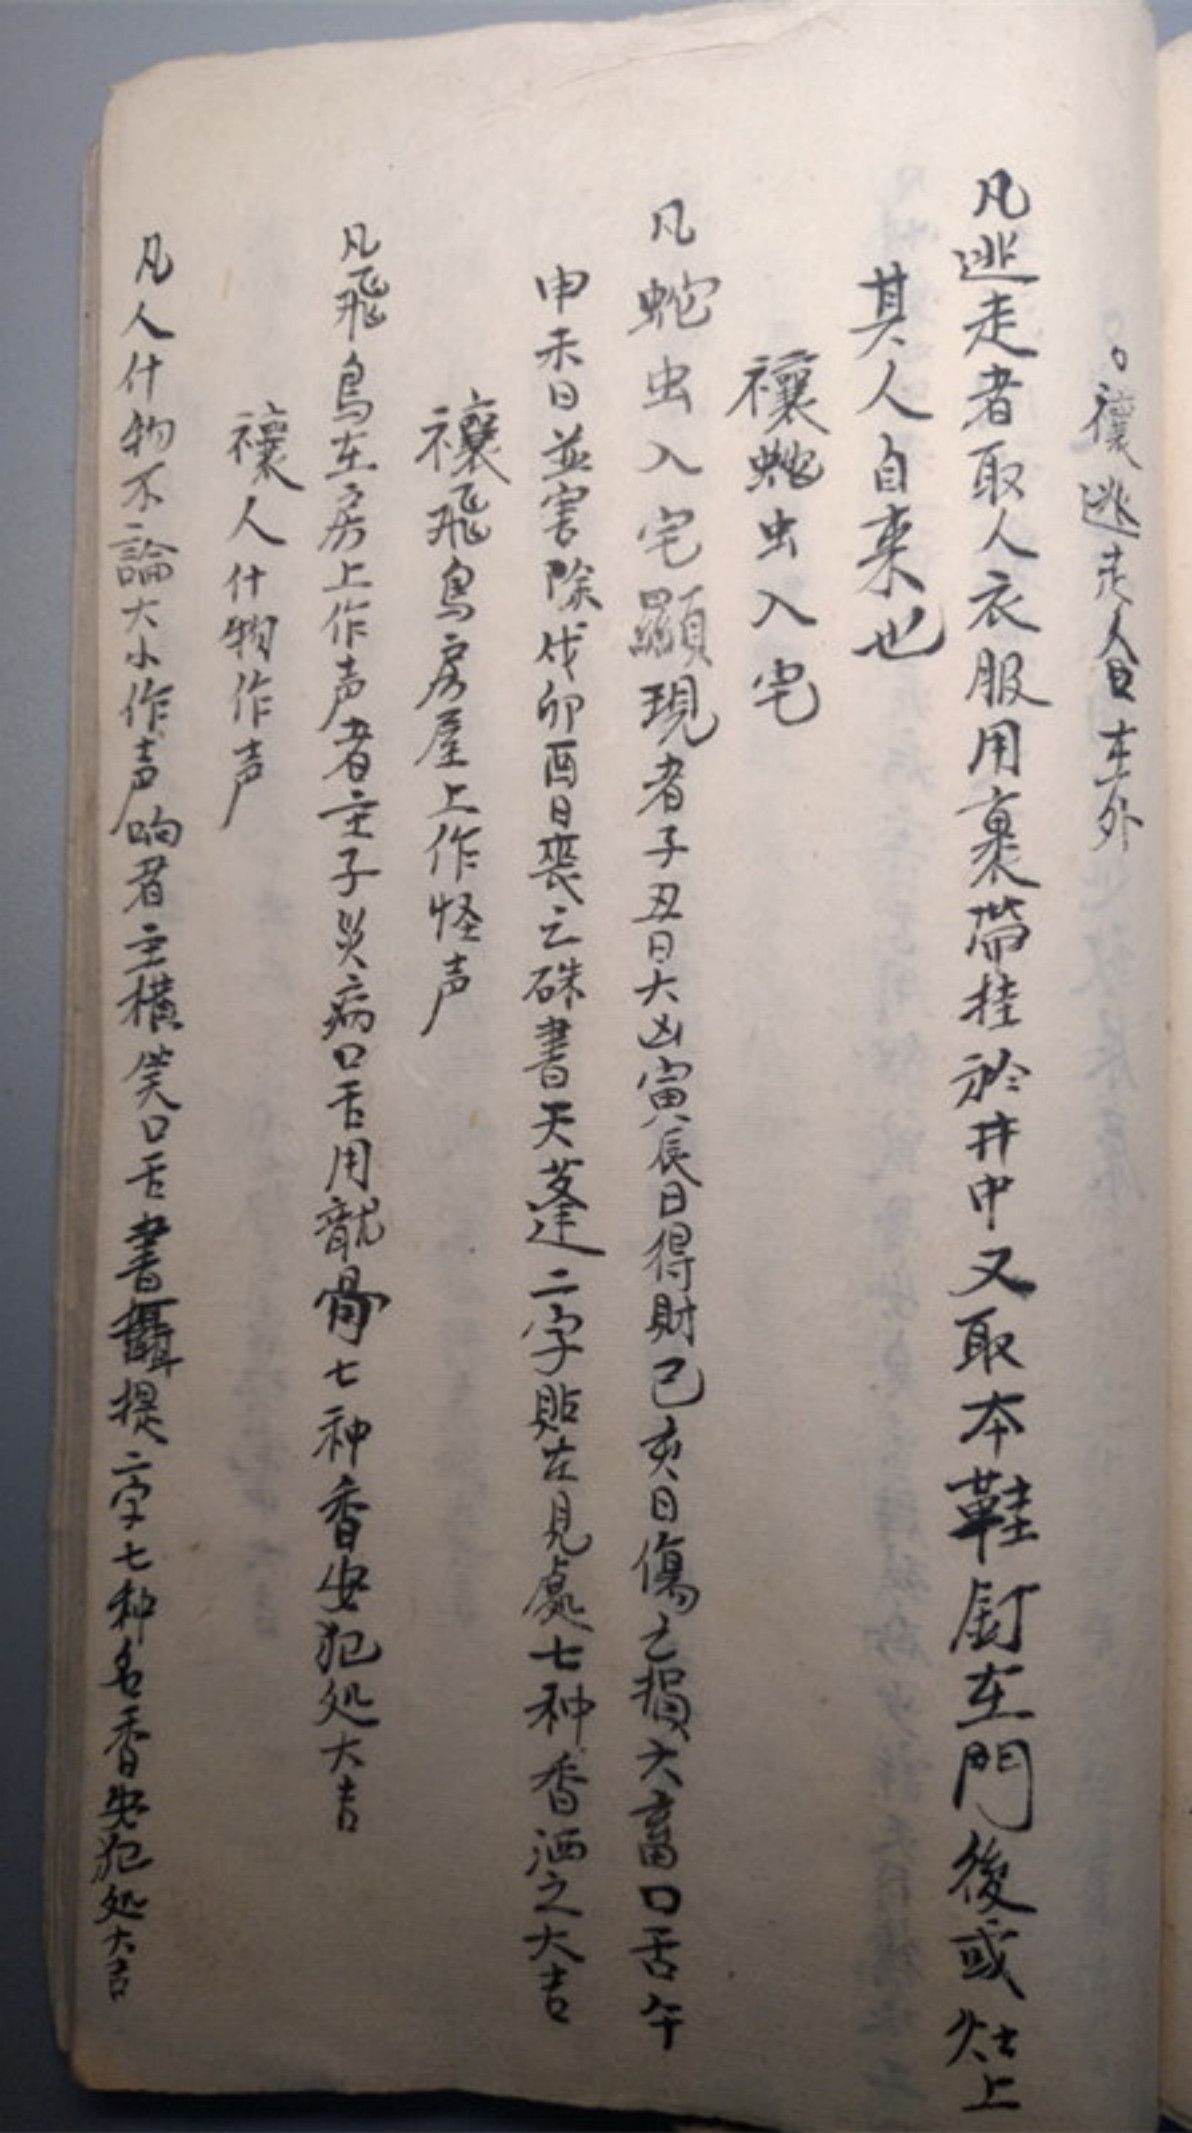 。禳逃走人日在外
凡逃走者取人衣服用裹帶挂於井中又取本鞋釘在門後或灶上
其人自来也
禳蛇虫入宅
凡蛇虫入宅顯現者子丑日大凶寅辰日得財己亥日傷亡損六畜口舌午
申未日並害除戌卯酉日喪亡硃書天蓬二字貼在見處七种香洒之大吉
禳飛鳥房屋上作怪声
凡飛鳥在房上作声者主子災病口舌用龍骨七种香安犯処大吉
禳人什物作声
凡人什物不論大小作声响者主橫笑口舌書攝提二字七种名香安犯処大吉